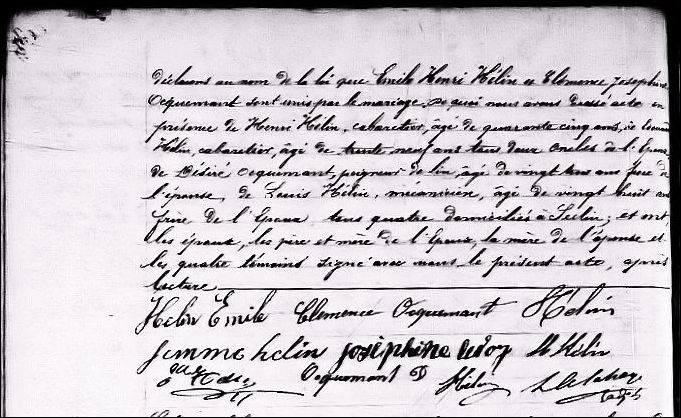 déclarons au nom de la loi que Emile Henri Hélin et Clémence Joséphine
Ocquemant sont unis par le mariage, de quoi nous avons dressé acte en
présence de Henri Hélin, cabaretier, âgé de quarante cinq ans, de
Hélin, cabaretier, âgé de trente neuf ans tous deux oncles de l'Epoux,
de Désiré Ocquemant, peigneur de lin, âgé de vingt trois ans frère de
l'épouse, de Louis Hélin, mécanicien, âgé de vingt huit ans
frère de l'Epoux tous quatre domiciliés à Seclin; et ont
les époux, les père et mère de l'Epoux, la mère de l'épouse et
les quatre témoins signé avec nous le présent acte, après
lecture
Helin Emile Clemence Ocquemant Helin
femme helin joséphine Hélin
Ocquemant D Hélin